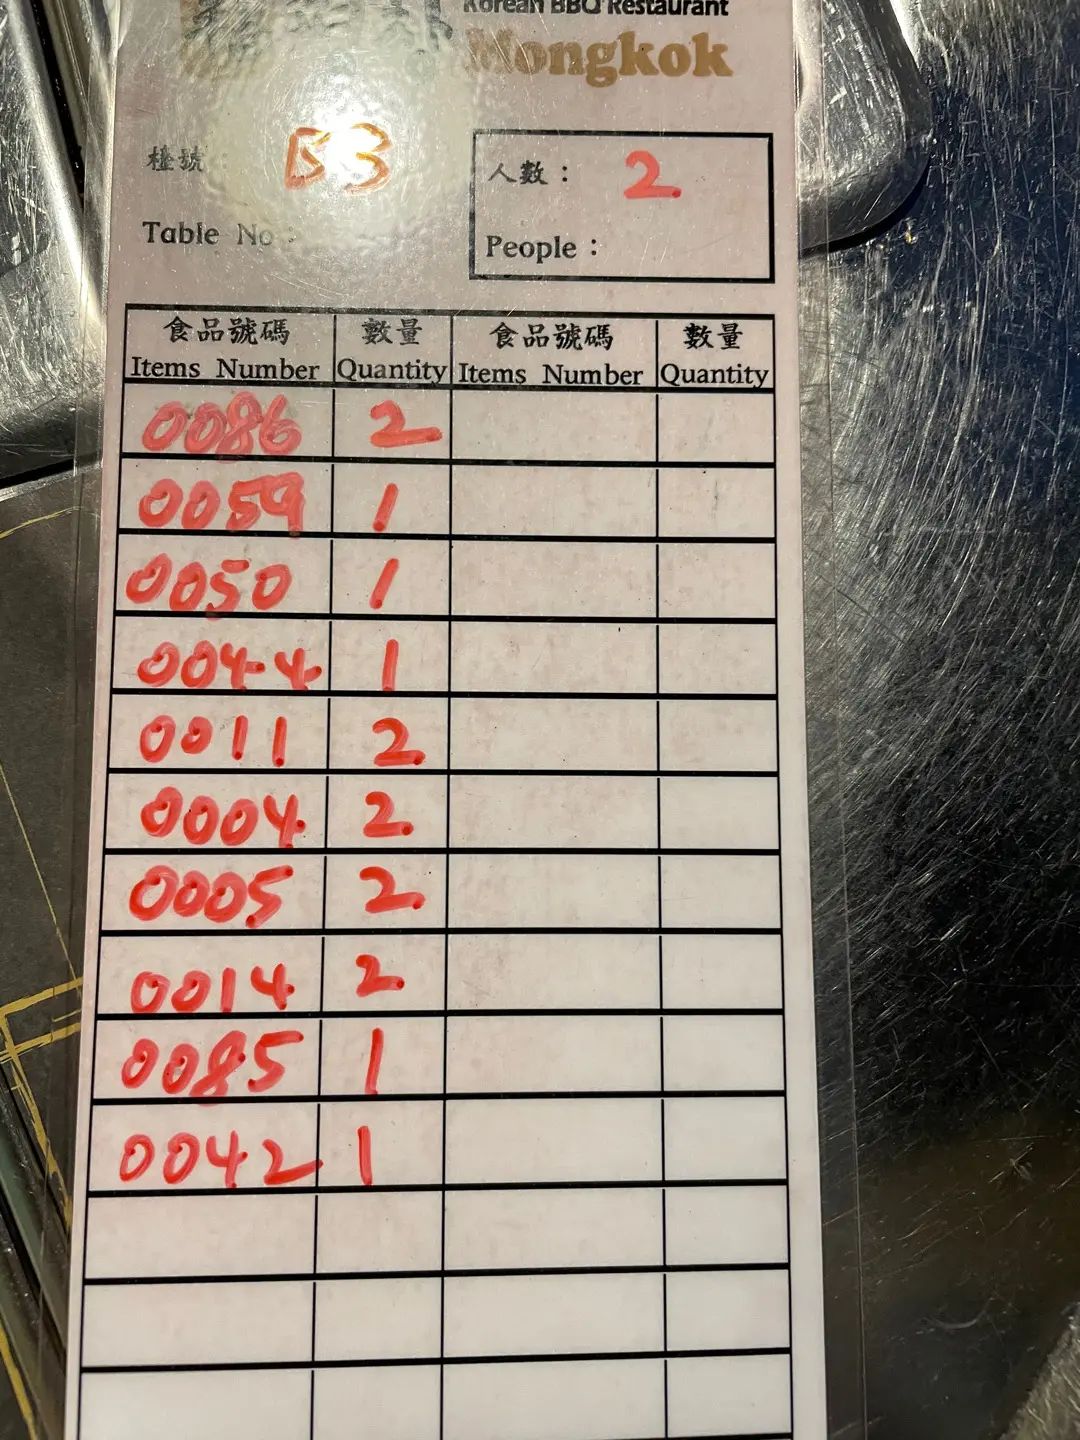 Korean BBQ Restaurant
Mongkok
檯號： B3
人數： 2
Table No :
People :
食品號碼 數量 食品號碼 數量
Items Number Quantity Items Number Quantity
0086 2
0059 1
0050 1
0044 1
0011 2
0004 2
0005 2
0014 2
0085 1
0042 1